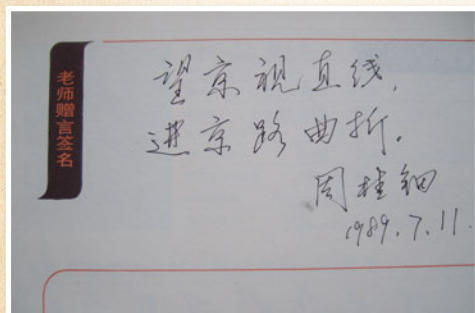 老师赠言签名
望京视直线,
进京路曲折.
周桂钿
1989.7.11.